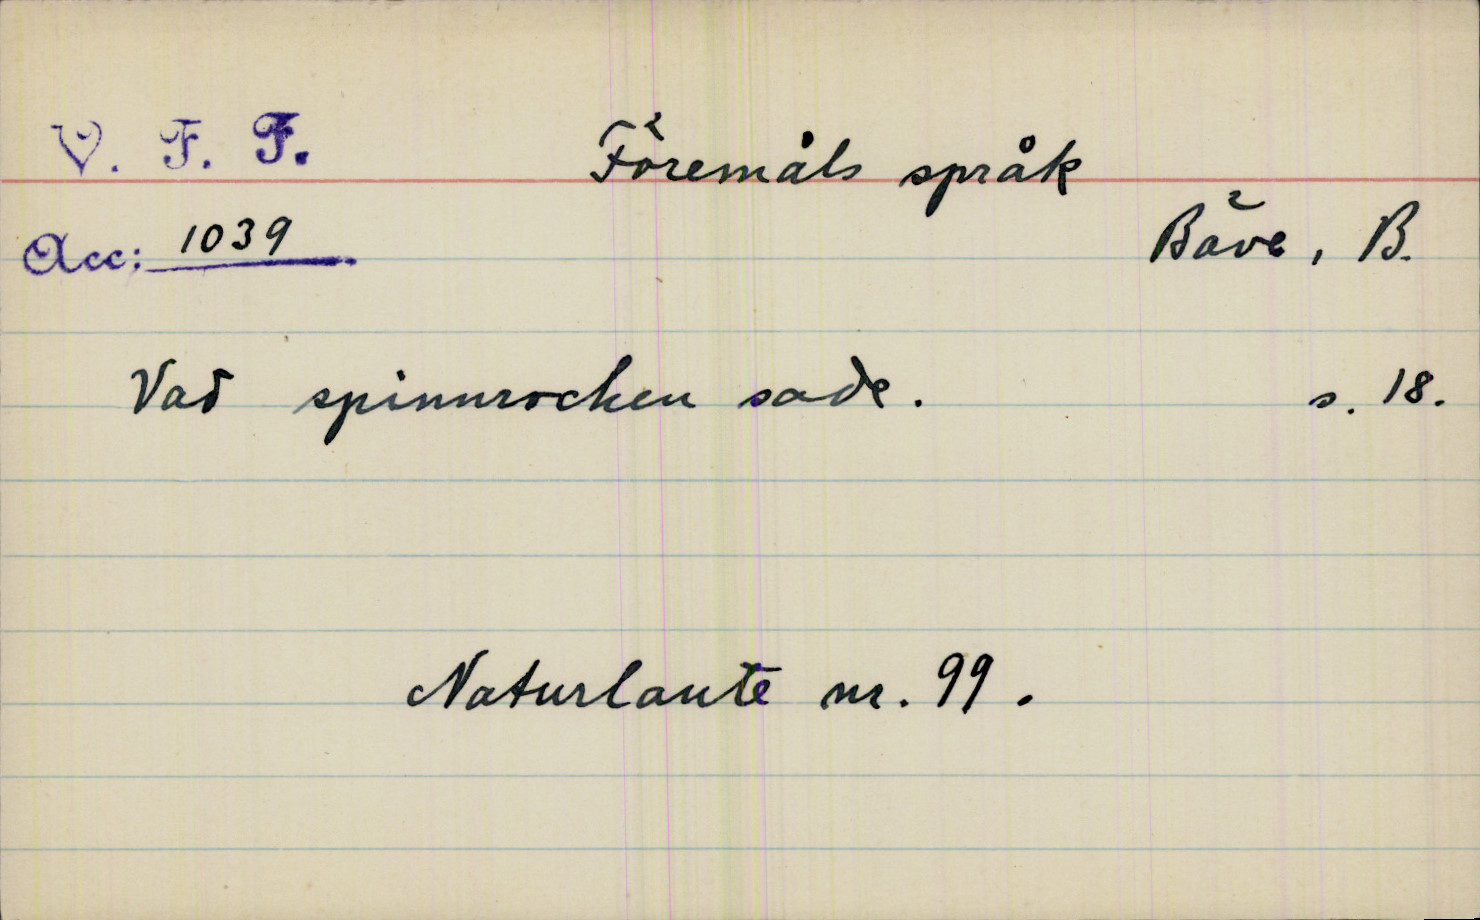 V. F. F.
Föremåls språk
Acc: 1039
Bäve, B.
Vad spinnrocken sade. s. 18.
Naturlaute nr. 99.